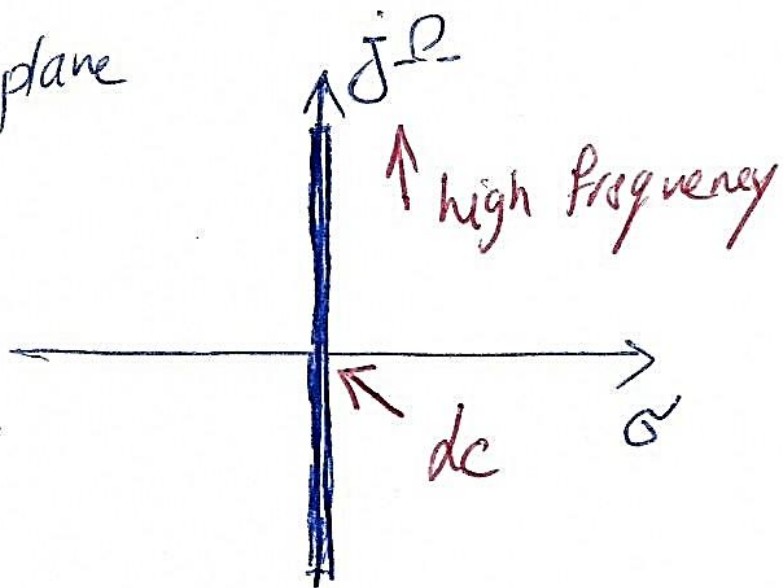 plane
jΩ
↑ high frequency
σ
dc